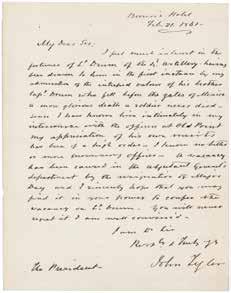 Brown's Hotel
Feb. 21. 1861.
My Dear Sir,
I feel much interest in the
fortunes of Lt. Drum of the 4th Artillery, having
been drawn to him in the first instance by my
admiration of the intrepid valour of his brother
Capt. Drum who fell before the gates of Mexico
a more glorious death a soldier never died -
since I have known him intimately in my
intercourse with the officers at Old Point
my appreciation of his own merits
has been of a high order. I know no better
or more meritorious officer. A vacancy
has been caused in the adjutant General's
department by the resignation of Major
Day and I sincerely hope that you may
find it in your power to confer the
vacancy on Lt. Drum. You will never
regret it I am well convinced.
I am Dr Sir
Resply & Truly yrs
John Tyler
The President